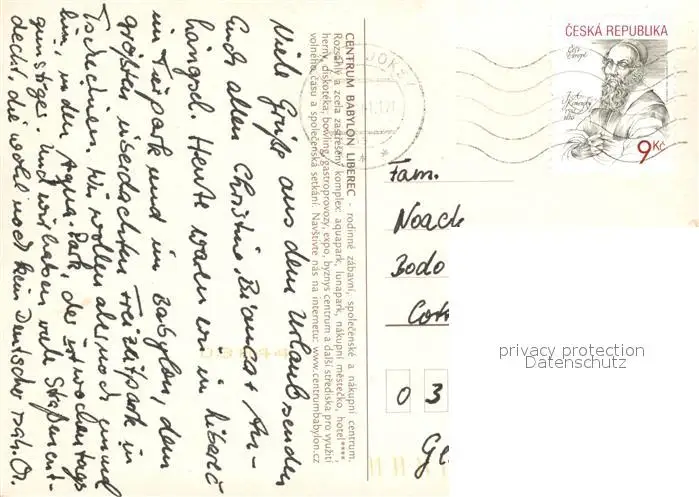 Viele Grüße aus dem Urlaub senden
Euch allen Christine, Bianca + An-
hängsel. Heute waren wir in Liberec
im Tierpark und im Babylon, dem
größten überdachten Freizeitpark in
Tschechien. Wir wollen alle noch
hin, in den Aqua-Park, der ist wochentags
günstiger. Und wir haben viele Straßen ent-
deckt, die wohl noch kein Deutscher sah.
CENTRUM BABYLON LIBEREC - rodinné zábavní, společenské a nákupní centrum.
Rozsáhlý a zcela zastřešený komplex: aquapark, lunapark, nákupní městečko, hotel****,
herny, diskotéka, bowling, gastroprovozy, expo, byznys centrum a další střediska pro využití
volného času a společenská setkání. Navštivte nás na internetu: www.centrumbabylon.cz
ČESKÁ REPUBLIKA
J. A. Komenský
1592
1670
9 Kč
Fam.
Noack
Bodo
0 3
privacy protection
Datenschutz